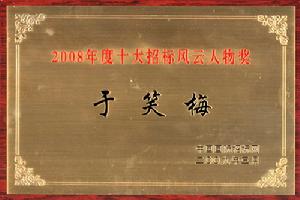 2008年度十大招标风云人物奖
于笑梅